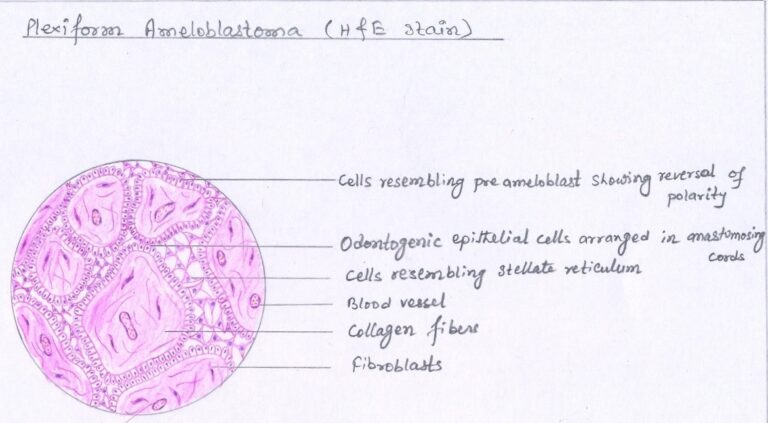 Plexiform Ameloblastoma (H & E stain)
Cells resembling pre ameloblast showing reversal of
polarity
Odontogenic epithelial cells arranged in anastomosing
cords
Cells resembling stellate reticulum
Blood vessel
Collagen fibers
Fibroblasts